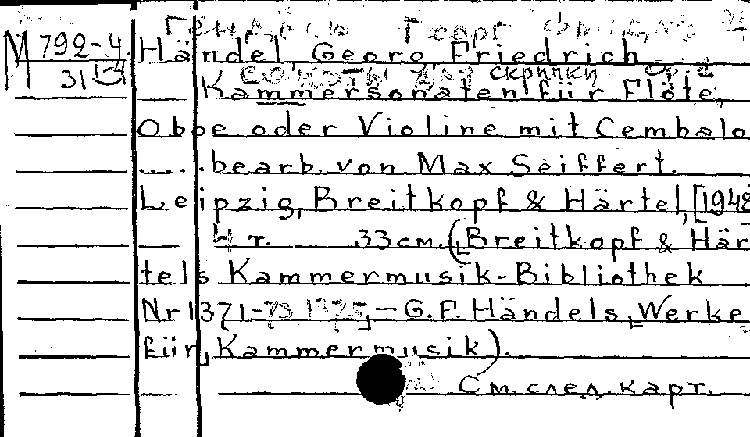 Гендель Георг Фридрих
M 792-4 Händel, Georg Friedrich
сонаты для скрипки
31 Kammersonaten für Flöte,
Oboe oder Violine mit Cembalo
.... bearb. von Max Seiffert.
Leipzig, Breitkopf & Härtel, [1948
4 т. 33 см. (Breitkopf & Här
tels Kammermusik-Bibliothek
Nr 1371- - G.F. Händels, Werke
für, Kammermusik).
См. след. карт.